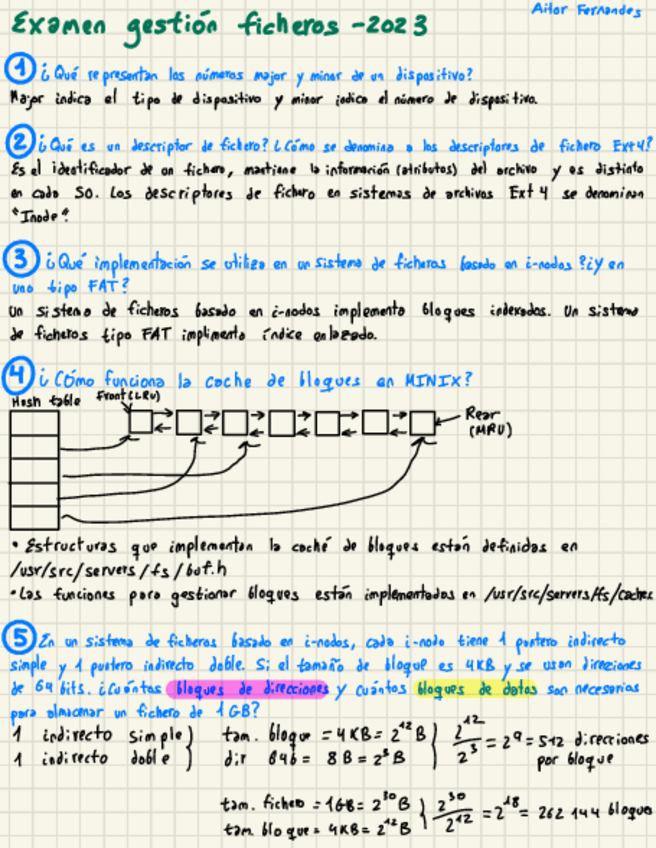 Examen gestión ficheros -2023
Aitor Fernandes
1 ¿Qué representan los números major y minor de un dispositivo?
Major indica el tipo de dispositivo y minor indica el número de dispositivo.
2 ¿Qué es un descriptor de fichero? ¿Cómo se denomina a los descriptores de fichero Ext4?
Es el identificador de un fichero, mantiene la información (atributos) del archivo y es distinto
en cada SO. Los descriptores de fichero en sistemas de archivos Ext 4 se denominan
"Inode".
3 ¿Qué implementación se utiliza en un sistema de ficheros basado en i-nodos? ¿Y en
uno tipo FAT?
Un sistema de ficheros basado en i-nodos implementa bloques indexados. Un sistema
de ficheros tipo FAT implimenta índice enlazado.
4 ¿Cómo funciona la cache de bloques en MINIX?
Hash table
Front(LRU)
Rear
(MRU)
• Estructuras que implementan la caché de bloques están definidas en
/usr/src/servers/fs/buf.h
• Las funciones para gestionar bloques están implementados en /usr/src/servers/fs/caches
5 En un sistema de ficheros basado en i-nodos, cada i-nodo tiene 1 puntero indirecto
simple y 1 puntero indirecto doble. Si el tamaño de bloque es 4KB y se usan direciones
de 64 bits. ¿Cuántos bloques de direcciones y cuántos bloques de datos son necesarios
para almacenar un fichero de 1GB?
1 indirecto simple } tam. bloque = 4KB = 2¹² B } 2¹²/2³ = 2⁹ = 512 direcciones
1 indirecto doble } dir 64b = 8B = 2³ B } por bloque
tam. fichero = 1GB = 2³⁰ B } 2³⁰/2¹² = 2¹⁸ = 262 144 bloques
tam bloque = 4KB = 2¹² B